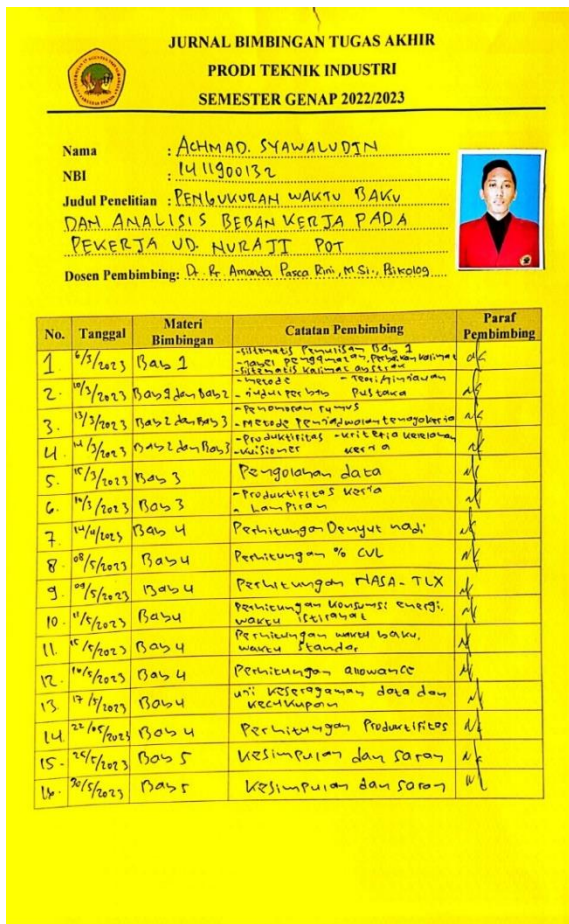 JURNAL BIMBINGAN TUGAS AKHIR
PRODI TEKNIK INDUSTRI
SEMESTER GENAP 2022/2023
Nama : ACHMAD. SYAWALUDIN
NBI : 1411900132
Judul Penelitian : PENGUKURAN WAKTU BAKU
DAN ANALISIS BEBAN KERJA PADA
PEKERJA UD. NURAJI POT
Dosen Pembimbing: Dr. Rr. Amanda Pasca Rini, M.Si., Psikolog
No. Tanggal Materi Bimbingan Catatan Pembimbing Paraf Pembimbing
1. 6/3/2023 Bab 1 -sistematis Penulisan Bab 1
-tabel pengamatan, Perbaikan Kalimat
-sistematis Kalimat abstrak
2. 10/3/2023 Bab 1 dan Bab 2 -metode - Teori/tinjauan
Pustaka
3. 13/3/2023 Bab 2 dan Bab 3 -Penomoran rumus
-metode Penjadwalan tenaga kerja
4. 14/3/2023 Bab 2 dan Bab 3 -Produktifitas -kriteria kelelahan
-kuisioner kerja
5. 15/3/2023 Bab 3 Pengolahan data
6. 16/3/2023 Bab 3 -Produktifitas kerja
- Lampiran
7. Bab 4 Perhitungan Denyut nadi
8. 08/5/2023 Bab 4 Perhitungan % CVL
9. 09/5/2023 Bab 4 Perhitungan NASA-TLX
10. 11/5/2023 Bab 4 Perhitungan konsumsi energi,
waktu istirahat
11. 15/5/2023 Bab 4 Perhitungan waktu baku,
waktu standar
12. 16/5/2023 Bab 4 Perhitungan allowance
13. 17/5/2023 Bab 4 uji keseragaman data dan
kecukupan
14. 22/05/2023 Bab 4 Perhitungan Produktifitas
15. Bab 5 Kesimpulan dan saran
16. 30/5/2023 Bab 5 Kesimpulan dan saran